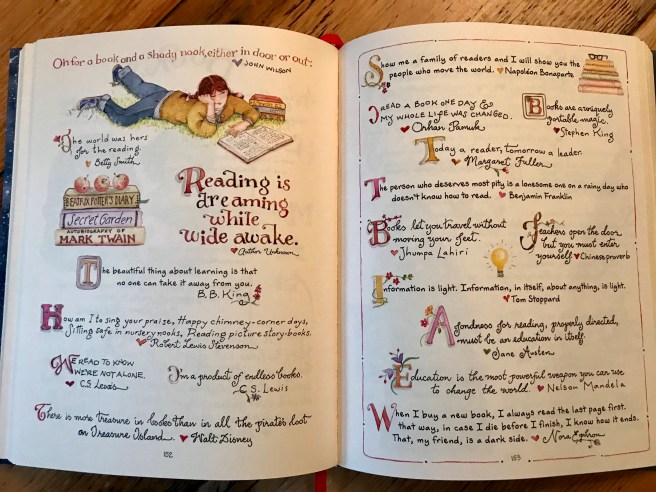 Oh for a book and a shady nook, either in door or out;
♥ JOHN WILSON
The world was hers
for the reading.
♥ Betty Smith
BEATRIX POTTER'S DIARY
Secret Garden
AUTOBIOGRAPHY OF
MARK TWAIN
Reading is
dreaming
while
wide awake.
♥ Author Unknown
The beautiful thing about learning is that
no one can take it away from you.
B.B. King
How am I to sing your praise, Happy chimney-corner days,
Sitting safe in nursery nooks, Reading picture story-books.
♥ Robert Lewis Stevenson
WE READ TO KNOW
WE'RE NOT ALONE.
♥ C.S. Lewis
I'm a product of endless books.
C.S. Lewis
There is more treasure in books than in all the pirate's loot
on Treasure Island. ♥ Walt Disney
152
Show me a family of readers and I will show you the
people who move the world. ♥ Napoléon Bonaparte
I READ A BOOK ONE DAY &
MY WHOLE LIFE WAS CHANGED.
♥ Orhan Pamuk
Books are a uniquely
portable magic.
♥ Stephen King
Today a reader, tomorrow a leader.
♥ Margaret Fuller
The person who deserves most pity is a lonesome one on a rainy day who
doesn't know how to read. ♥ Benjamin Franklin
Books let you travel without
moving your feet.
♥ Jhumpa Lahiri
Teachers open the door
but you must enter
yourself ♥ Chinese proverb
Information is light. Information, in itself, about anything, is light.
♥ Tom Stoppard
A fondness for reading, properly directed,
must be an education in itself.
♥ Jane Austen
Education is the most powerful weapon you can use
to change the world. ♥ Nelson Mandela
When I buy a new book, I always read the last page first.
that way, in case I die before I finish, I know how it ends.
That, my friend, is a dark side. ♥ Nora Ephron
153